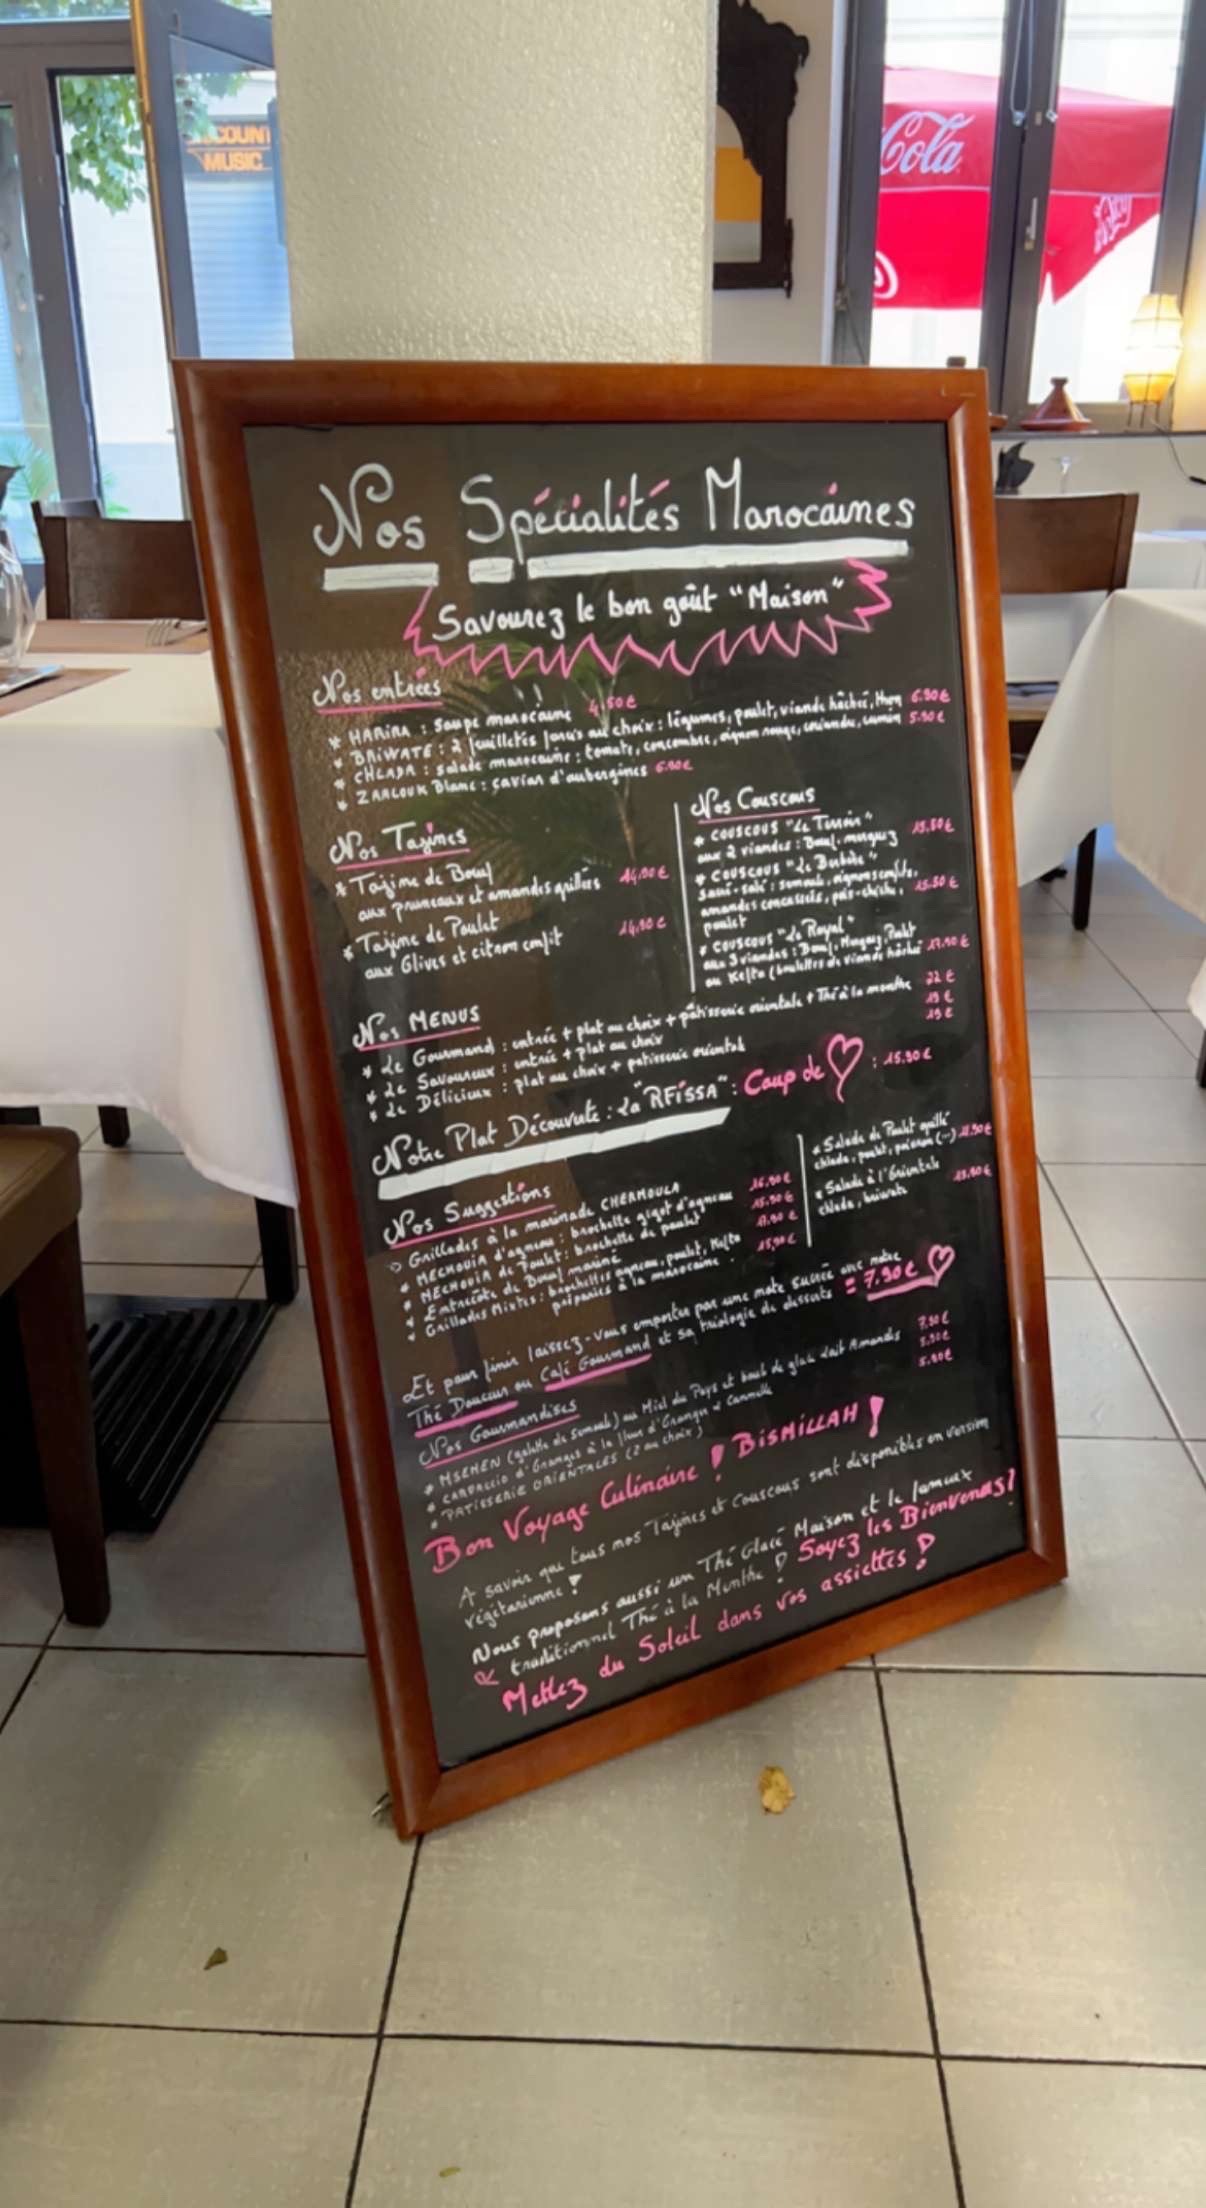 COUNT
MUSIC
Cola
Nos Spécialités Marocaines
Savourez le bon goût "Maison"
Nos entrées
* HARIRA : Soupe marocaine 4,50€
* BRIWATE : 2 feuilletés farcis au choix : légumes, poulet, viande hâchée, thon 6.90€
* CHLADA : salade marocaine : tomate, concombre, oignon rouge, coriandre, cumin 5.90€
* ZAALOUK Blanc : caviar d'aubergines 6.90€
Nos Tajines
* Tajine de Boeuf
aux pruneaux et amandes grillées 14,90€
* Tajine de Poulet 14,90€
aux Olives et citron confit
Nos Couscous
* COUSCOUS "Le Terroir"
aux 2 viandes : Boeuf, merguez 15.50€
* COUSCOUS "Le Berbère"
Sucré-salé : semoule, oignons confits,
amandes concassées, pois-chiche, 15.50€
poulet
* COUSCOUS "Le Royal"
aux 3 viandes : Boeuf, Merguez, Poulet
ou Kefta (boulettes de viande hâchée 17.90€
Nos MENUS
* Le Gourmand : entrée + plat au choix + pâtisserie orientale + Thé à la menthe 22€
* Le Savoureux : entrée + plat au choix 19€
* Le Délicieux : plat au choix + patisserie oriental 19€
Notre Plat Découverte : La "RFISSA" : Coup de : 15.90€
Nos Suggestions
Grillades à la marinade CHERMOULA
* MECHOUIA d'agneau : brochette gigot d'agneau 16,90€
* MECHOUIA de Poulet : brochette de poulet 15.90€
* Entrecôte de Boeuf mariné 17.90€
* Grillades Mixtes : brochettes agneau, poulet, Kefta 15,90€
préparées à la marocaine.
* Salade de Poulet grillé
chlada, poulet, poivron (...)
* Salade à l'Orientale
chlada, briwate
Et pour finir laissez-vous emporter par une note sucrée avec notre
Thé Douceur ou Café Gourmand et sa triologie de desserts = 7,90€
Nos Gourmandises
* MSEMEN (galette de Semoule) au Miel du Pays et boule de glace Lait Amandes 7,90€
* CARPACCIO d'Oranges à la fleur d'Oranger & Cannelle 5,90€
* PATISSERIE ORIENTALES (2 au choix) 5.90€
Bon Voyage Culinaire ! BISMILLAH !
A savoir que tous nos Tajines et Couscous sont disponibles en version
végétarienne !
Nous proposons aussi un Thé Glacé Maison et le fameux
& traditionnel Thé à la Menthe ! Soyez les Bienvenus !
Mettez du Soleil dans vos assiettes !